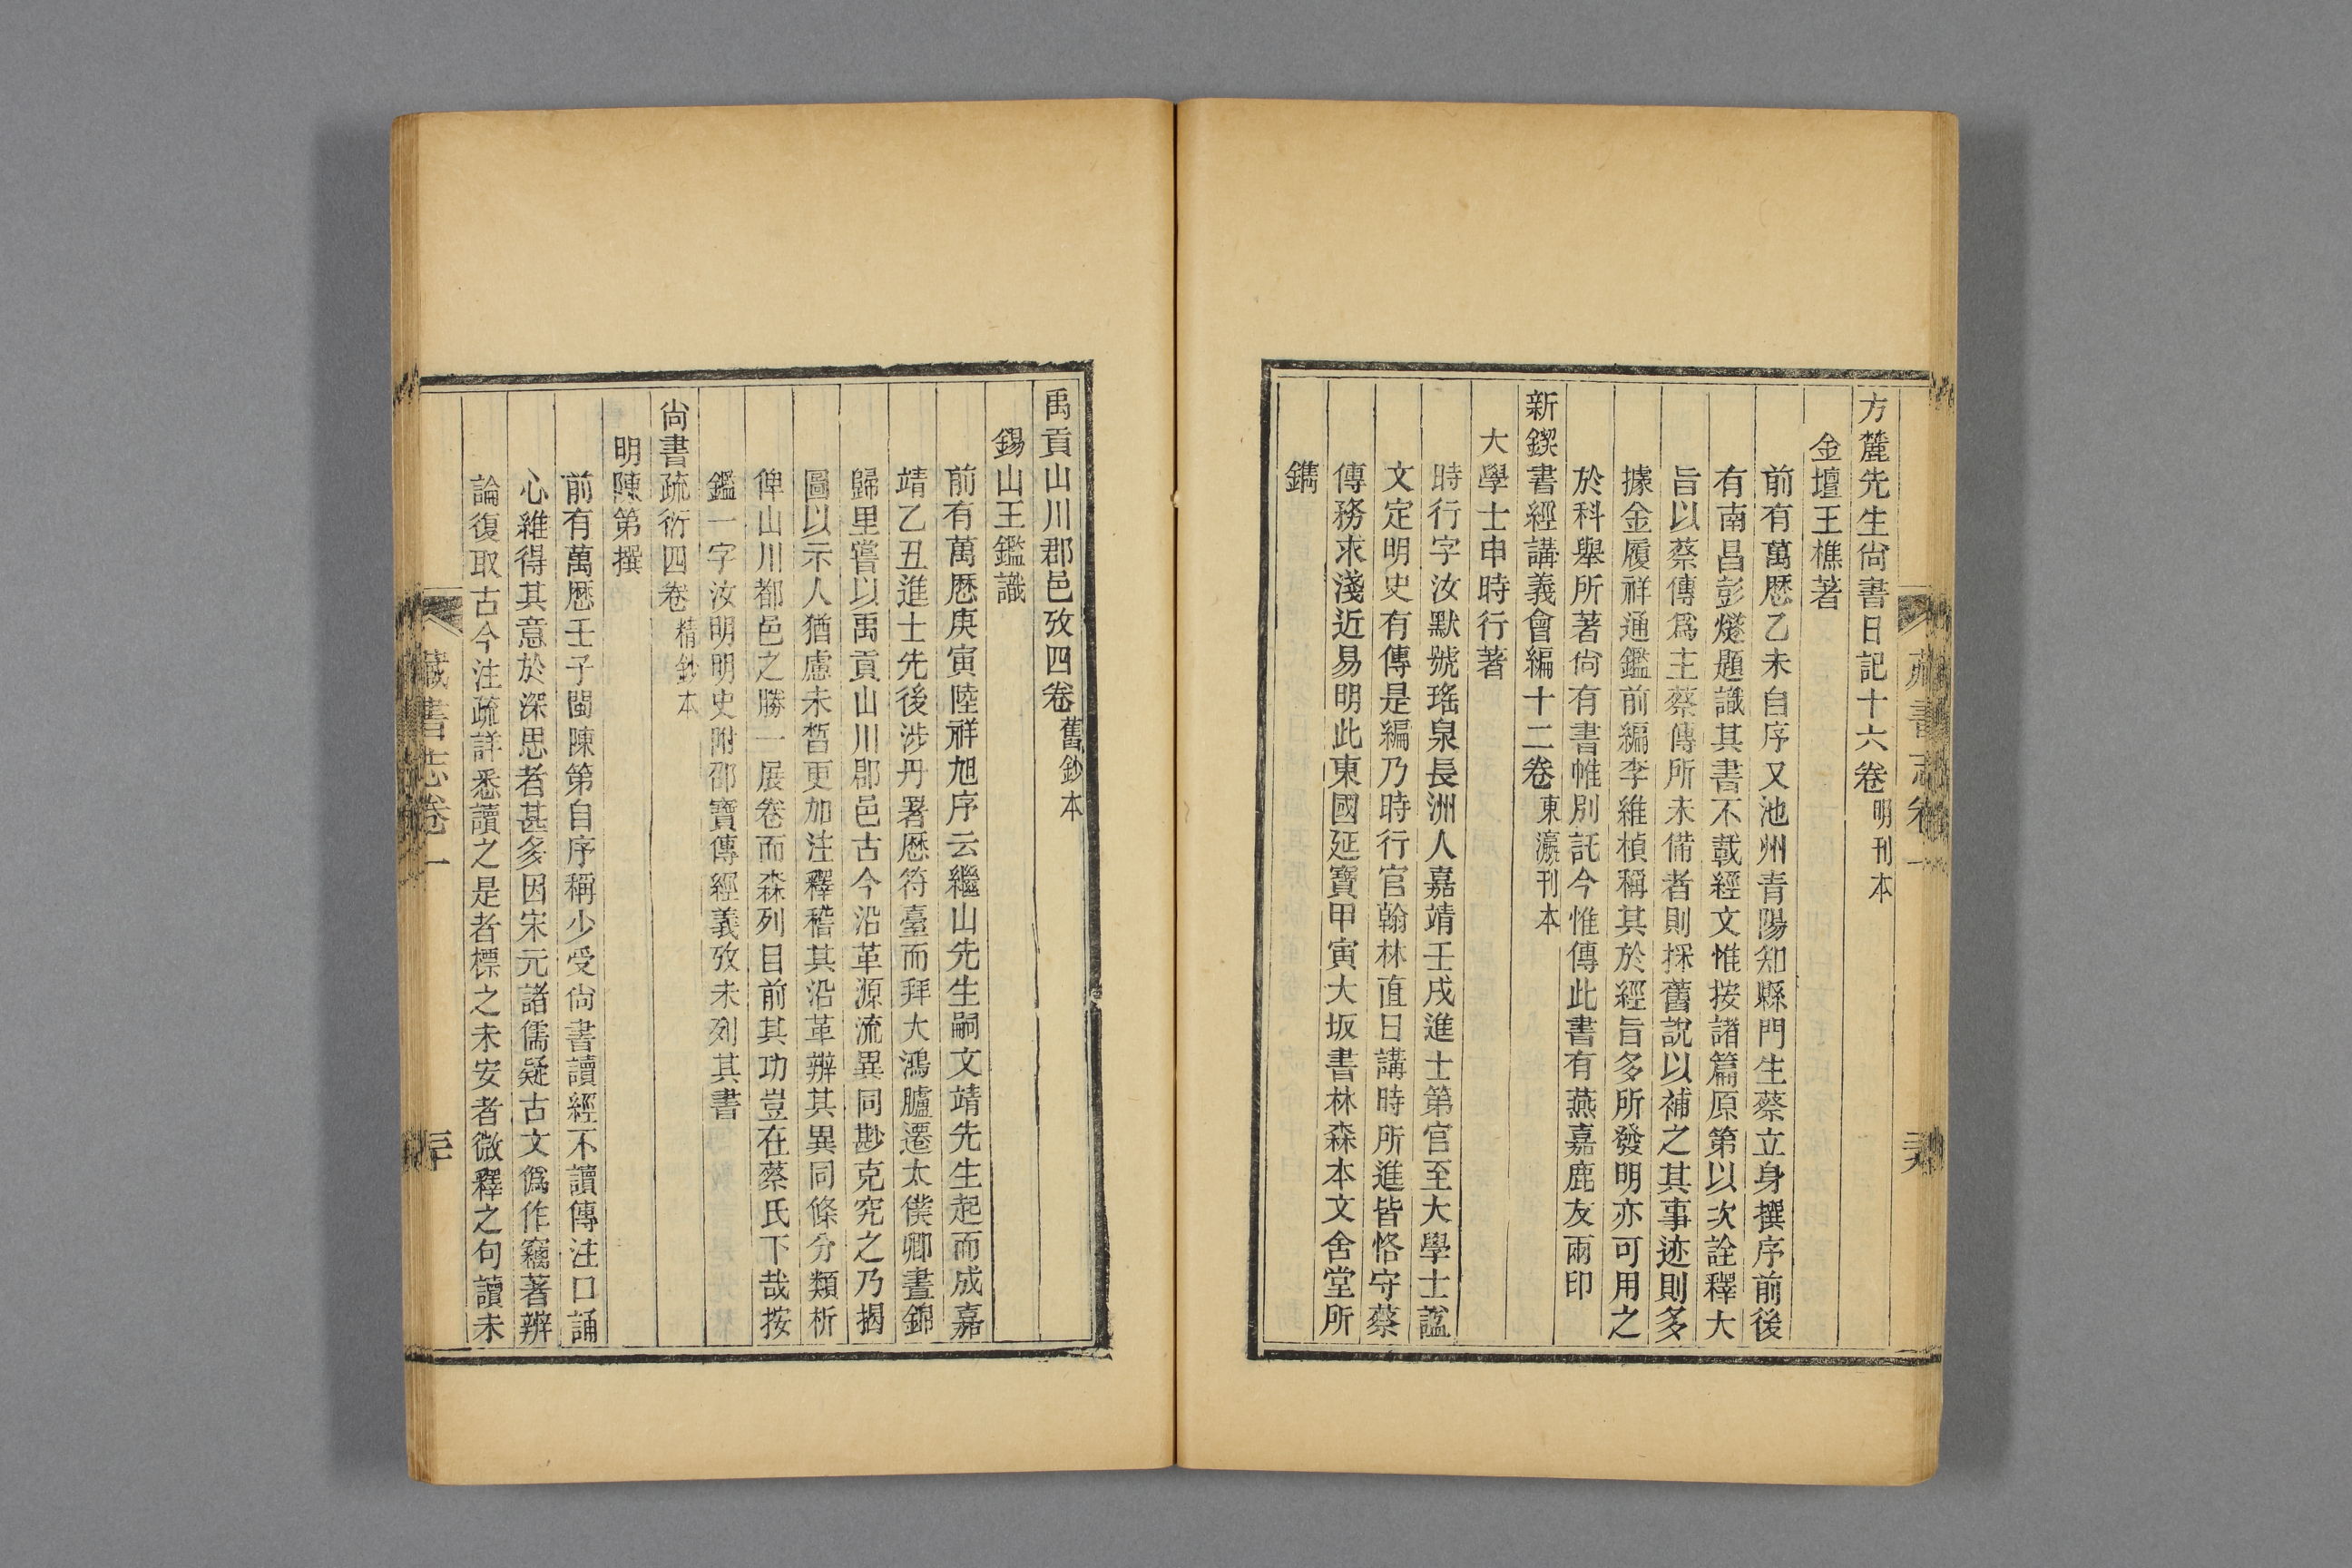 方麓先生尙書日記十六卷明刊本
金壇王樵著
前有萬歷乙未自序又池州青陽知縣門生蔡立身撰序前後
有南昌彭燧題識其書不載經文惟按諸篇原第以次詮釋大
旨以蔡傳爲主蔡傳所未備者則採舊說以補之其事迹則多
據金履祥通鑑前編李維楨稱其於經旨多所發明亦可用之
於科舉所著尙有書帷別記今惟傳此書有燕嘉鹿友兩印
新鍥書經講義會編十二卷東瀛刊本
大學士申時行著
時行字汝默號瑤泉長洲人嘉靖壬戌進士第官至大學士諡
文定明史有傳是編乃時行官翰林直日講時所進皆恪守蔡
傳務求淺近易明此東國延寶甲寅大坂書林森本文舍堂所
鐫
禹貢山川郡邑攷四卷舊鈔本
錫山王鑑識
前有萬歷庚寅陸祥旭序云繼山先生嗣文靖先生起而成嘉
靖乙丑進士先後涉丹署歷符臺而拜大鴻臚遷太僕卿晝錦
歸里嘗以禹貢山川郡邑古今沿革源流異同尠克究之乃揭
圖以示人猶慮未晳更加注釋稽其沿革辨其異同條分類析
俾山川都邑之勝一展卷而森列目前其功豈在蔡氏下哉按
鑑一字汝明明史附邵寶傳經義攷未列其書
尙書疏衍四卷精鈔本
明陳第撰
前有萬歷壬子閩陳第自序稱少受尙書讀經不讀傳注口誦
心維得其意於深思者甚多因宋元諸儒疑古文僞作竊著辨
論復取古今注疏詳悉讀之是者標之未安者微釋之句讀未
藏書志卷一